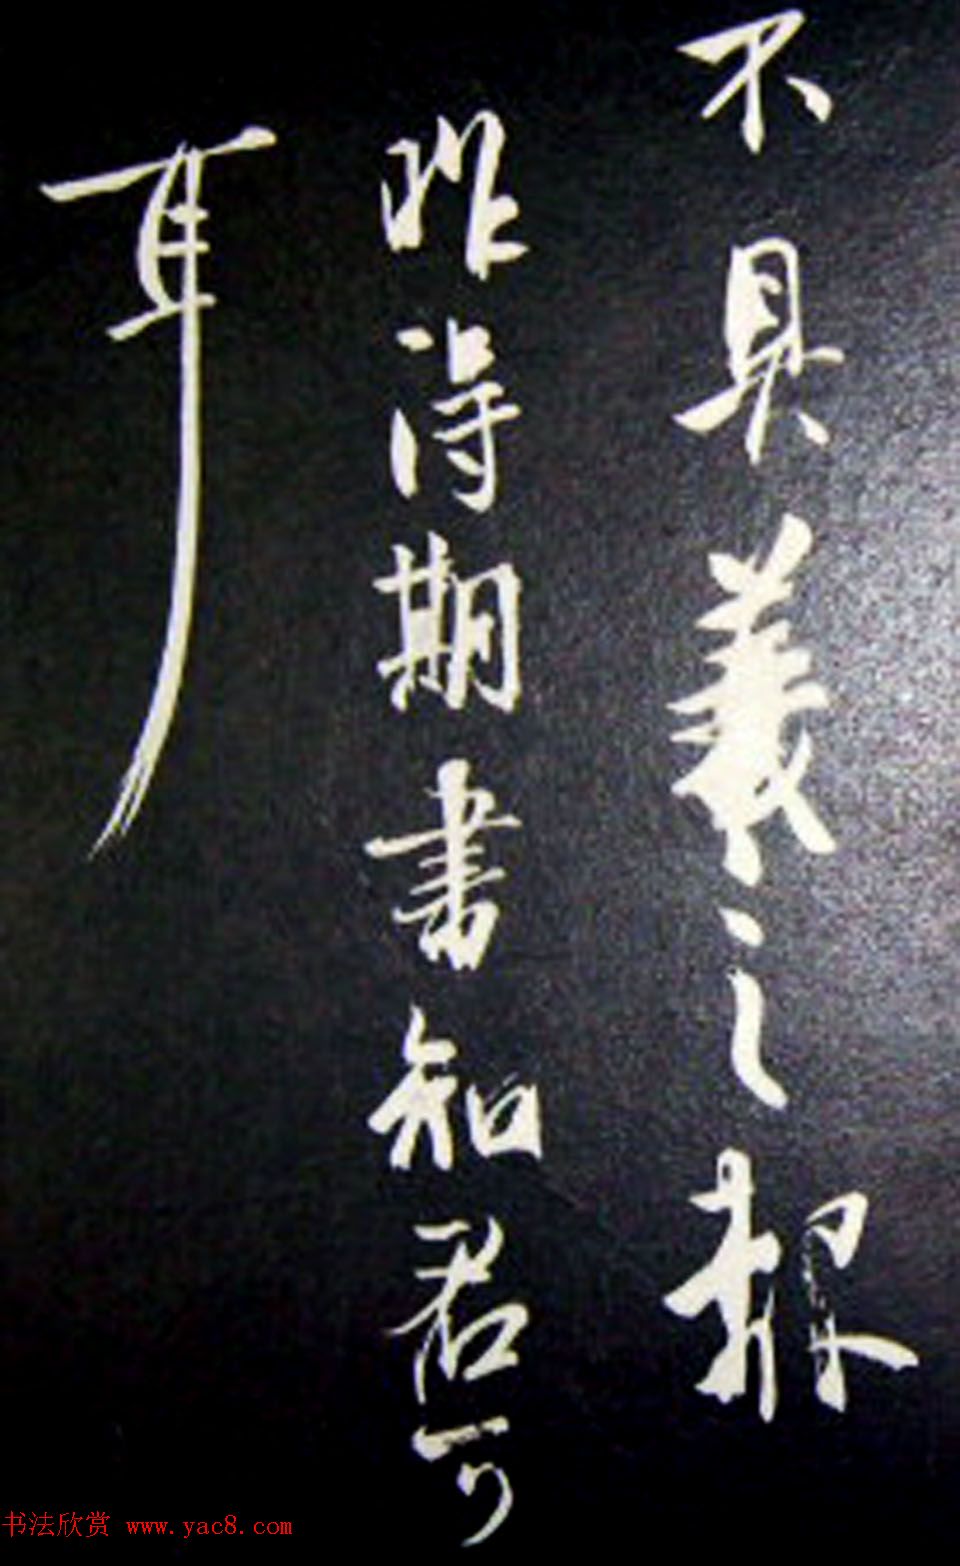 不具羲之報
昨得期書知君可
耳
书法欣赏 www.yac8.com